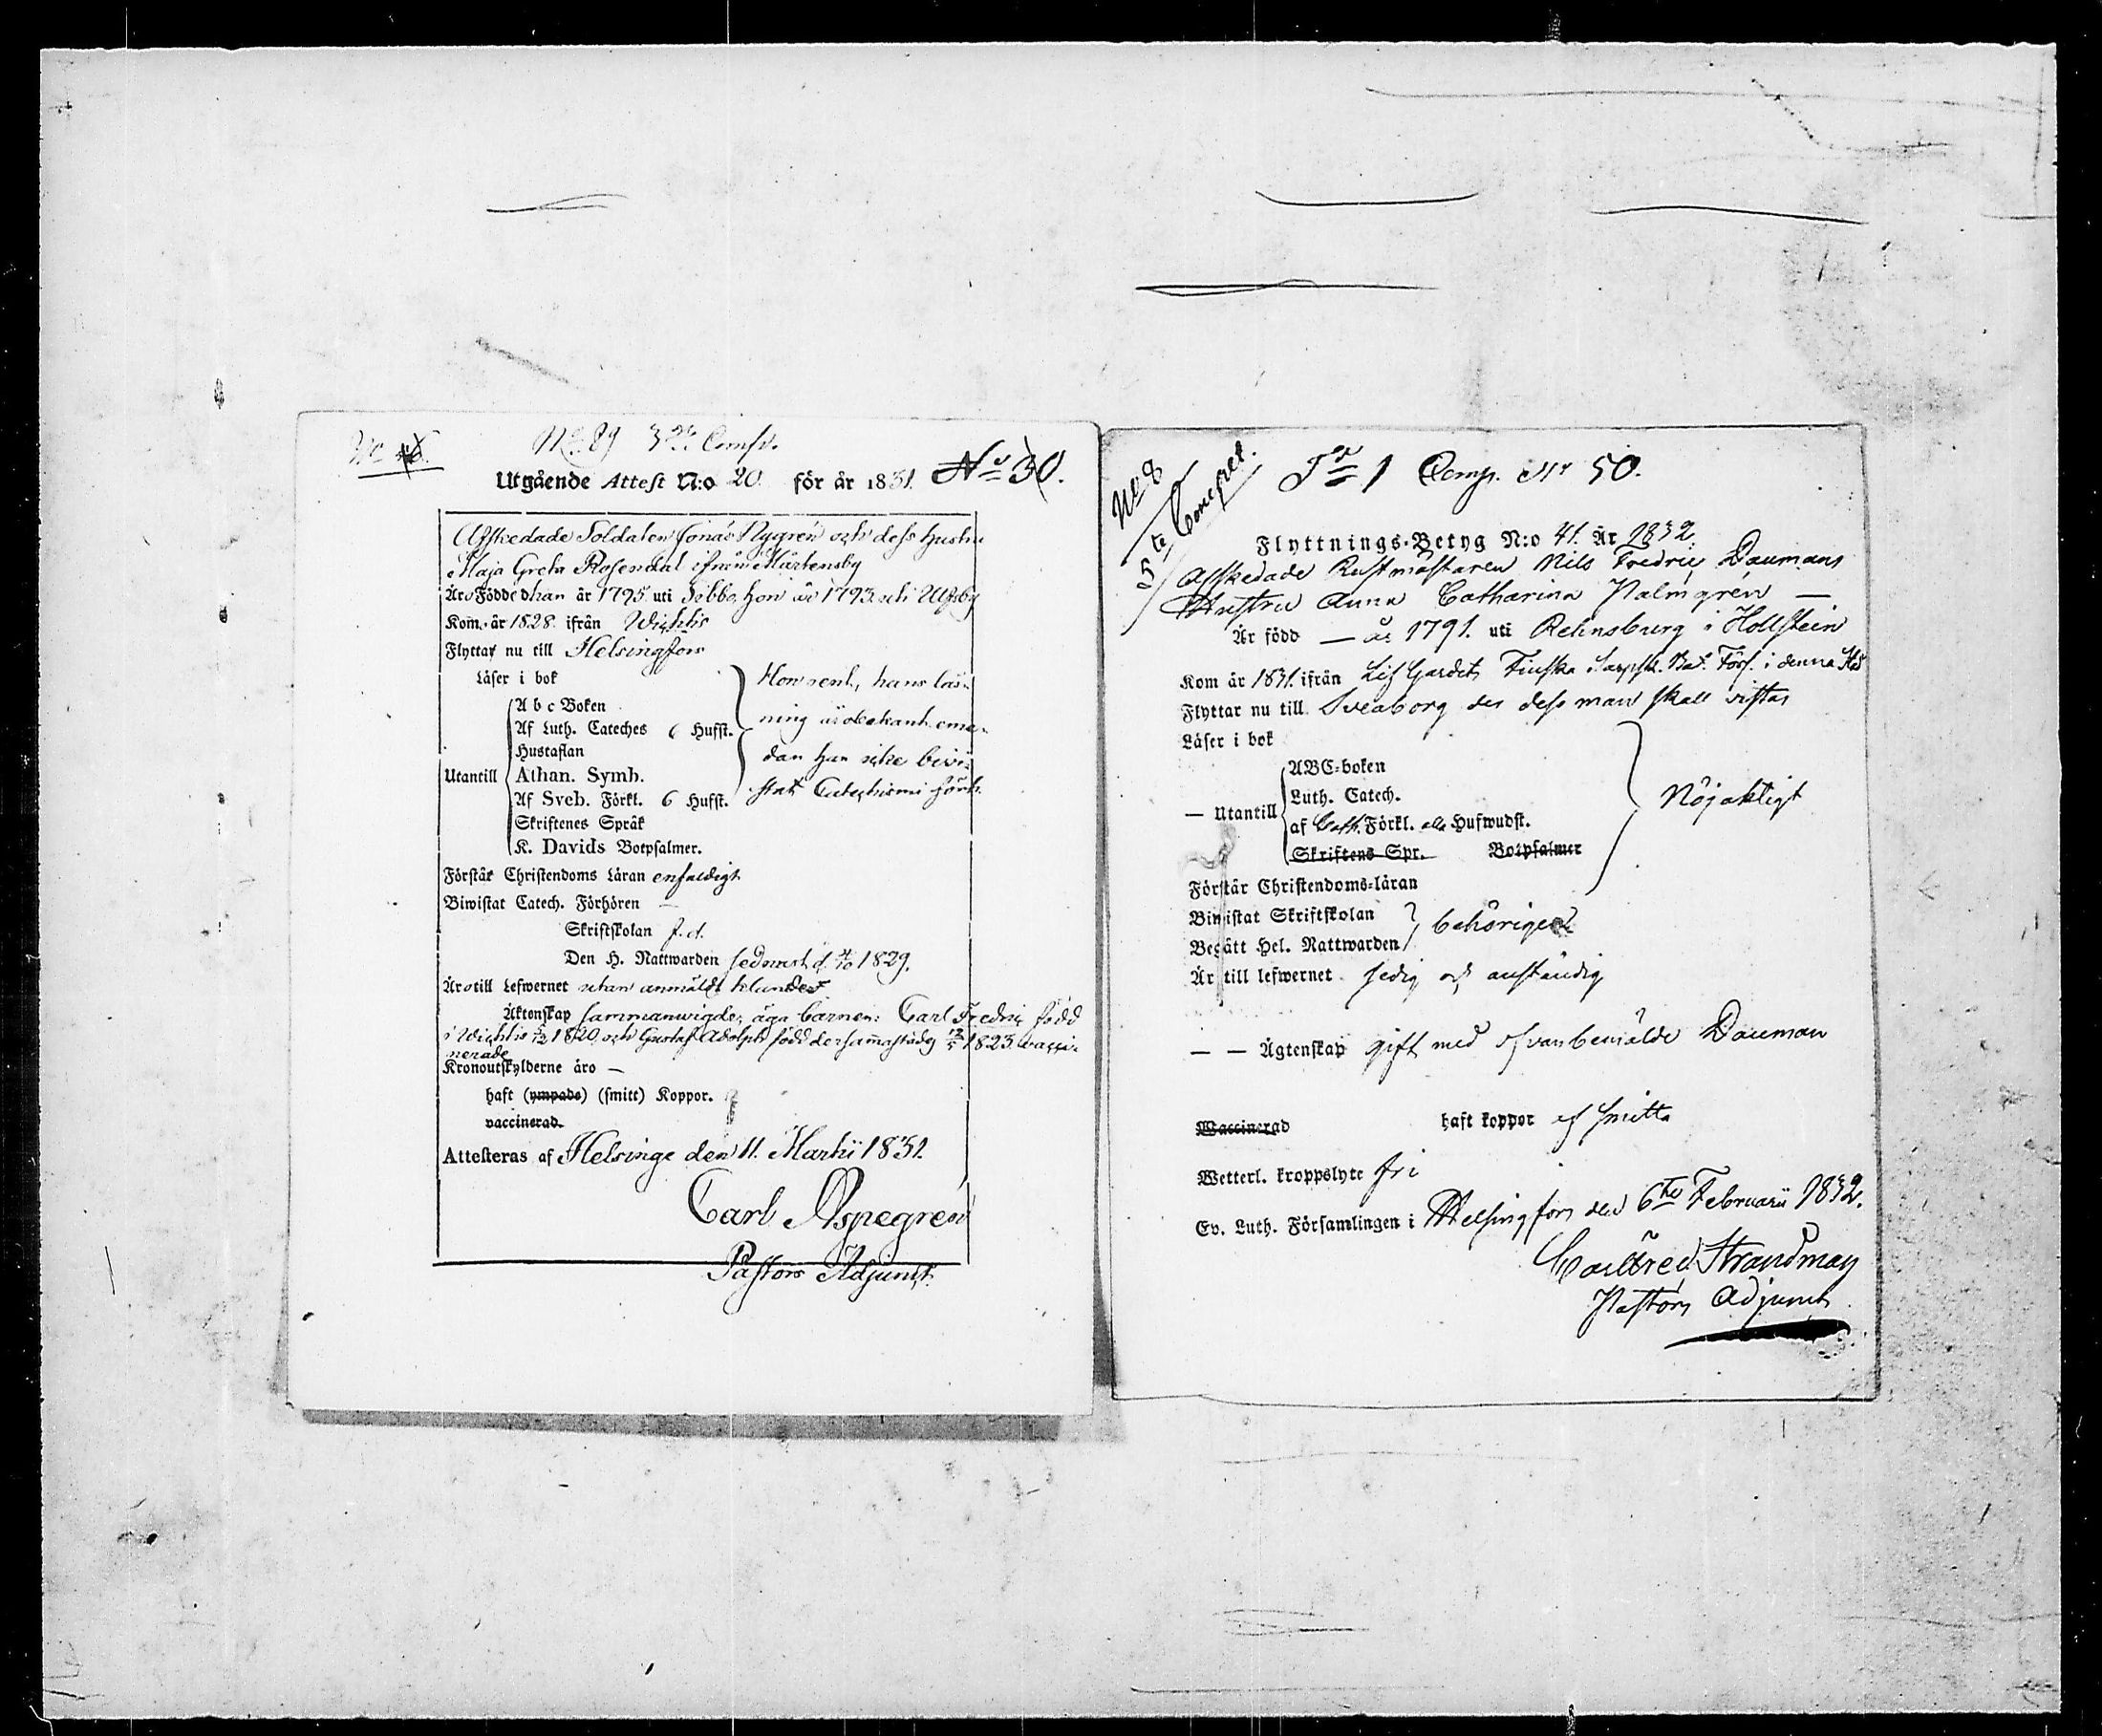 No 89 3dje Comp.
Utgående Attest N:o 20. för år 1831. No 30.
Afskedade Soldaten Jonas Nygrén och dess hustru
Maja Greta Rosendal ifrån Mårtensby
Äro Födde han år 1795 uti Sibbo, hon år 1793
Kom. år 1828 ifrån Wichtis
Flyttar nu till Helsingfors
Läser i bok
A b c Boken
Af Luth. Cateches 6 Hufst.
Hustaflan
Utantill Athan. Symb.
Af Sveb. Förkl. 6 Hufst.
Skriftenes Språk
K. Davids Botpsalmer.
Hon rent, hans läs-
ning är obekant eme-
dan han icke bivi-
stat Catechismi förh.
Förstår Christendoms Läran enfaldigt
Biwistat Catech. Förhören —
Skriftskolan f. d.
Den H. Nattwarden sednast d. 4/10 1829.
Äro till Lefwernet utan anmäldt klander
Äktenskap sammanwigde; äga barnen: Carl Fredric född
i Wichtis 1820, och Gustaf Adolph född dersammastädes 1823 vacci-
nerade
Kronoutskylderne äro —
haft (ympade) (smitt) Koppor.
vaccinerad.
Attesteras af Helsinge den 11. Martii 1831.
Carl Aspegren
Pastors Adjunct.
No 8
5te Comp
1 Comp. No 50.
Flyttnings-Betyg N:o 41. År 1832.
Afskedade Rustmästaren Nils Fredric Daumans
Hustru Anna Catharina Palmgrén —
Är född — år 1791. uti Rehnsburg i Hollstein
Kom år 1831. ifrån Lif Gardets Finska Skarpsk. Bat. Förs. i denna
Flyttar nu till Sveaborg der dess man skall vistas
Läser i bok
ABC-boken
Luth. Catech.
— Utantill
af Förkl. alla Hufwudst.
Skriftens Spr. Botpsalmer
Nöjaktigt
Förstår Christendoms-läran
Biwistat Skriftskolan
Begått Hel. Nattwarden
behörigen
Är till lefwernet sedig och anständig
— — Ägtenskap gift med ofvanbemälde Dauman
Waccinerad haft koppor af smitta
Wetterl. kroppslyte fri
Ev. Luth. Församlingen i Helsingfors den 6te Februarii 1832.
Carl Fred. Strandman
Pastors Adjunct